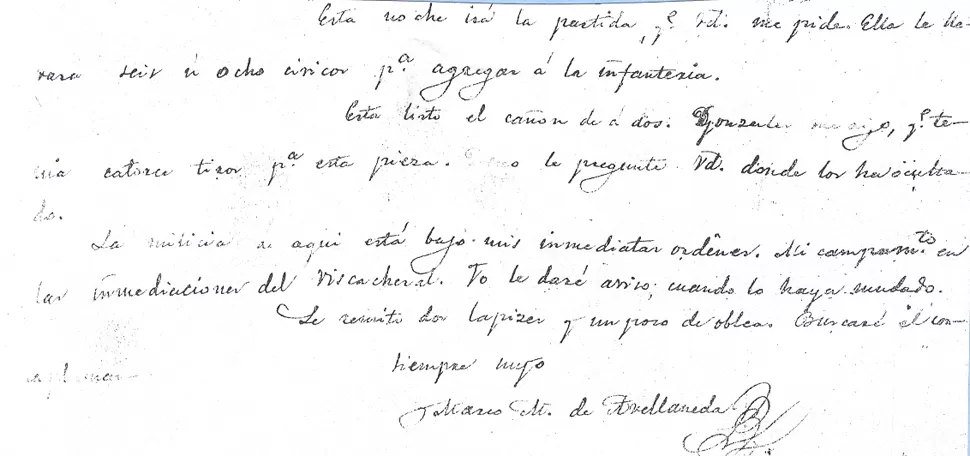 Esta noche irá la partida, q.e Vd. me pide. Ella le lle-
vara seis ú ocho civicos p.a agregar á la infanteria.
Esta listo el cañon de á dos. Gonzalez me dijo, q.e te-
nia catorce tiros p.a esta pieza. le pregunte Vd. donde los ha oculta-
do.
La milicia de aqui está bajo mis inmediatas ordenes. Mi campam.to en
las inmediaciones del Viscacheral. Yo le daré aviso, cuando lo haya mudado.
Le remito dos lapizes y un poco de oblea. Buscaré el con-
siempre suyo
Marco M. de Avellaneda